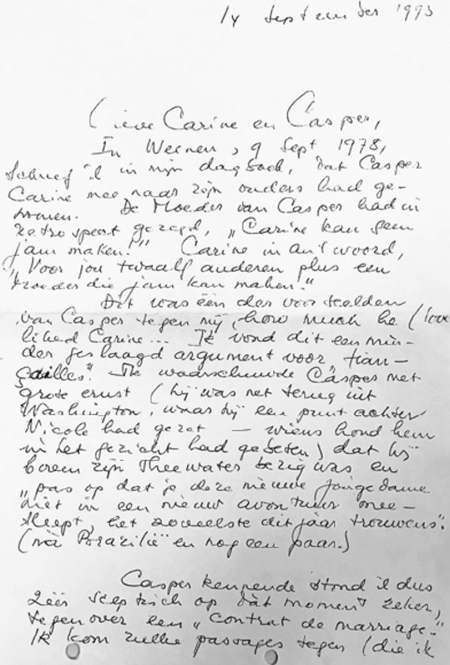 14 september 1993
Lieve Carine en Casper,
In Weenen, 9 Sept 1978,
schreef ik in mijn dagboek, dat Casper
Carine mee naar zijn ouders had ge-
nomen. De Moeder van Casper had in
retrospect gezegd, „Carine kan geen
jam maken!" Carine in antwoord,
„Voor jou twaalf anderen plus een
moeder die jam kan maken!"
Dit was één der voorbeelden
van Casper tegen mij, how much he (love
liked Carine... Ik vond dit een min-
der geslaagd argument voor „fian-
çailles". Ik waarschuwde Casper met
grote ernst (hij was net terug uit
Washington, waar hij een punt achter
Nicole had gezet — wiens hond hem
in het gezicht had gebeten) dat hij
boven zijn Theewater bezig was en
„pas op dat je deze nieuwe jongedame
niet in een nieuw avontuur mee-
sleept, het zoveelste dit jaar trouwens".
(na en nog een paar.)
Casper kennende stond ik dus
zéér sceptisch op dàt moment zeker,
tegenover een „Contrat de marriage."
Ik kom zulke passages tegen (die ik